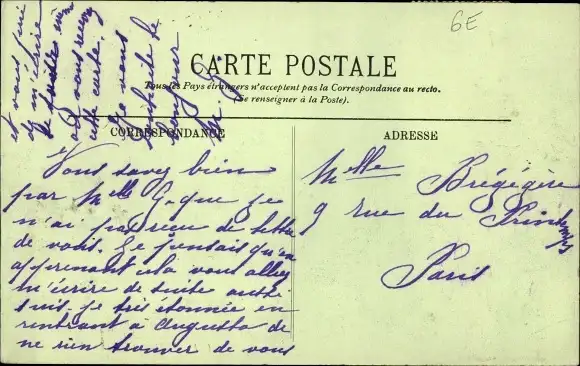 6E
CARTE POSTALE
Tous les Pays étrangers n'acceptent pas la Correspondance au recto.
(Se renseigner à la Poste).
CORRESPONDANCE
ADRESSE
Vous savez bien
par Melle G. que je
n'ai pas reçu de lettre
de vous. Je pensais qu'en
apprenant cela vous alliez
m'écrire de suite aussi
suis-je très étonnée en
rentrant à Augusta de
ne rien trouver de vous
et vous
m'écrire
de suite
vous
cette carte.
Je vous
souhaite le
bonjour
M. G.
Melle Brégégère
9 rue du Printemps
Paris